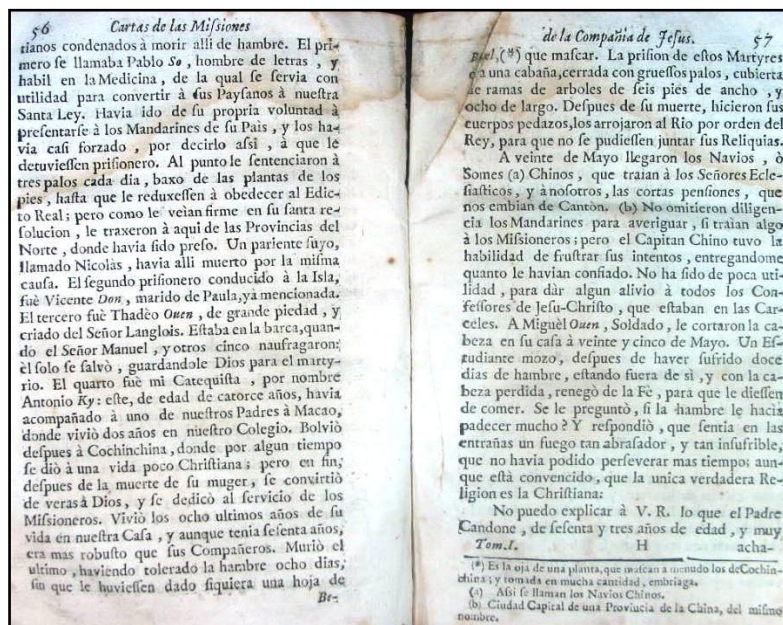 56 Cartas de las Miſsiones
tianos condenados à morir alli de hambre. El pri-
mero ſe llamaba Pablo So, hombre de letras, y
habil en la Medicina, de la qual ſe ſervia con
utilidad para convertir à ſus Payſanos à nueſtra
Santa Ley. Havia ido de ſu propria voluntad à
preſentarſe à los Mandarines de ſu Pais, y los ha-
via caſi forzado, por decirlo aſsi, à que le
detuvieſſen priſionero. Al punto le ſentenciaron à
tres palos cada dia, baxo de las plantas de los
pies, haſta que le reduxeſſen à obedecer al Edic-
to Real; pero como le veìan firme en ſu ſanta re-
ſolucion, le traxeron à aqui de las Provincias del
Norte, donde havia ſido preſo. Un pariente ſuyo,
llamado Nicolàs, havia alli muerto por la miſma
cauſa. El ſegundo priſionero conducido à la Isla,
fuè Vicente Don, marido de Paula, yà mencionada.
El tercero fuè Thadèo Ouen, de grande piedad, y
criado del Señor Langlois. Eſtaba en la barca, quan-
do el Señor Manuel, y otros cinco naufragaron;
èl ſolo ſe ſalvò, guardandole Dios para el marty-
rio. El quarto fuè mi Catequiſta, por nombre
Antonio Ky: eſte, de edad de catorce años, havia
acompañado à uno de nueſtros Padres à Macao,
donde viviò dos años en nueſtro Colegio. Bolviò
deſpues à Cochinchina, donde por algun tiempo
ſe diò à una vida poco Chriſtiana; pero en fin,
deſpues de la muerte de ſu muger, ſe convirtiò
de veras à Dios, y ſe dedicò al ſervicio de los
Miſsioneros. Viviò los ocho ultimos años de ſu
vida en nueſtra Caſa, y aunque tenia ſeſenta años,
era mas robuſto que ſus Compañeros. Muriò el
ultimo, haviendo tolerado la hambre ocho dias,
ſin que le huvieſſen dado ſiquiera una hoja de
Be-
de la Compañia de Jeſus. 57
(*) que maſcar. La priſion de eſtos Martyres
era una cabaña, cerrada con grueſſos palos, cubierta
de ramas de arboles de ſeis pies de ancho, y
ocho de largo. Deſpues de ſu muerte, hicieron ſus
cuerpos pedazos, los arrojaron al Rio por orden del
Rey, para que no ſe pudieſſen juntar ſus Reliquias.
A veinte de Mayo llegaron los Navios, ò
Somes (a) Chinos, que traían à los Señores Ecle-
ſiaſticos, y à noſotros, las cortas penſiones, que
nos embian de Cantòn. (b) No omitieron diligen-
cia los Mandarines para averiguar, ſi traìan algo
à los Miſsioneros; pero el Capitan Chino tuvo la
habilidad de fruſtrar ſus intentos, entregandome
quanto le havian confiado. No ha ſido de poca uti-
lidad, para dàr algun alivio à todos los Con-
feſſores de Jeſu-Chriſto, que eſtaban en las Car-
celes. A Miguèl Ouen, Soldado, le cortaron la ca-
beza en ſu caſa à veinte y cinco de Mayo. Un Eſ-
tudiante mozo, deſpues de haver ſufrido doce
dias de hambre, eſtando fuera de sì, y con la ca-
beza perdida, renegò de la Fè, para que le dieſſen
de comer. Se le preguntò, ſi la hambre le hacia
padecer mucho? Y reſpondiò, que ſentia en las
entrañas un fuego tan abraſador, y tan inſufrible,
que no havia podido perſeverar mas tiempo; aun-
que eſtà convencido, que la unica verdadera Re-
ligion es la Chriſtiana:
No puedo explicar à V. R. lo que el Padre
Candone, de ſeſenta y tres años de edad, y muy
Tom.I. H acha-
(*) Es la oja de una planta, que maſcan à menudo los de Cochin-
china; y tomada en mucha cantidad, embriaga.
(a) Aſsi ſe llaman los Navios Chinos.
(b) Ciudad Capital de una Provincia de la China, del miſmo
nombre.